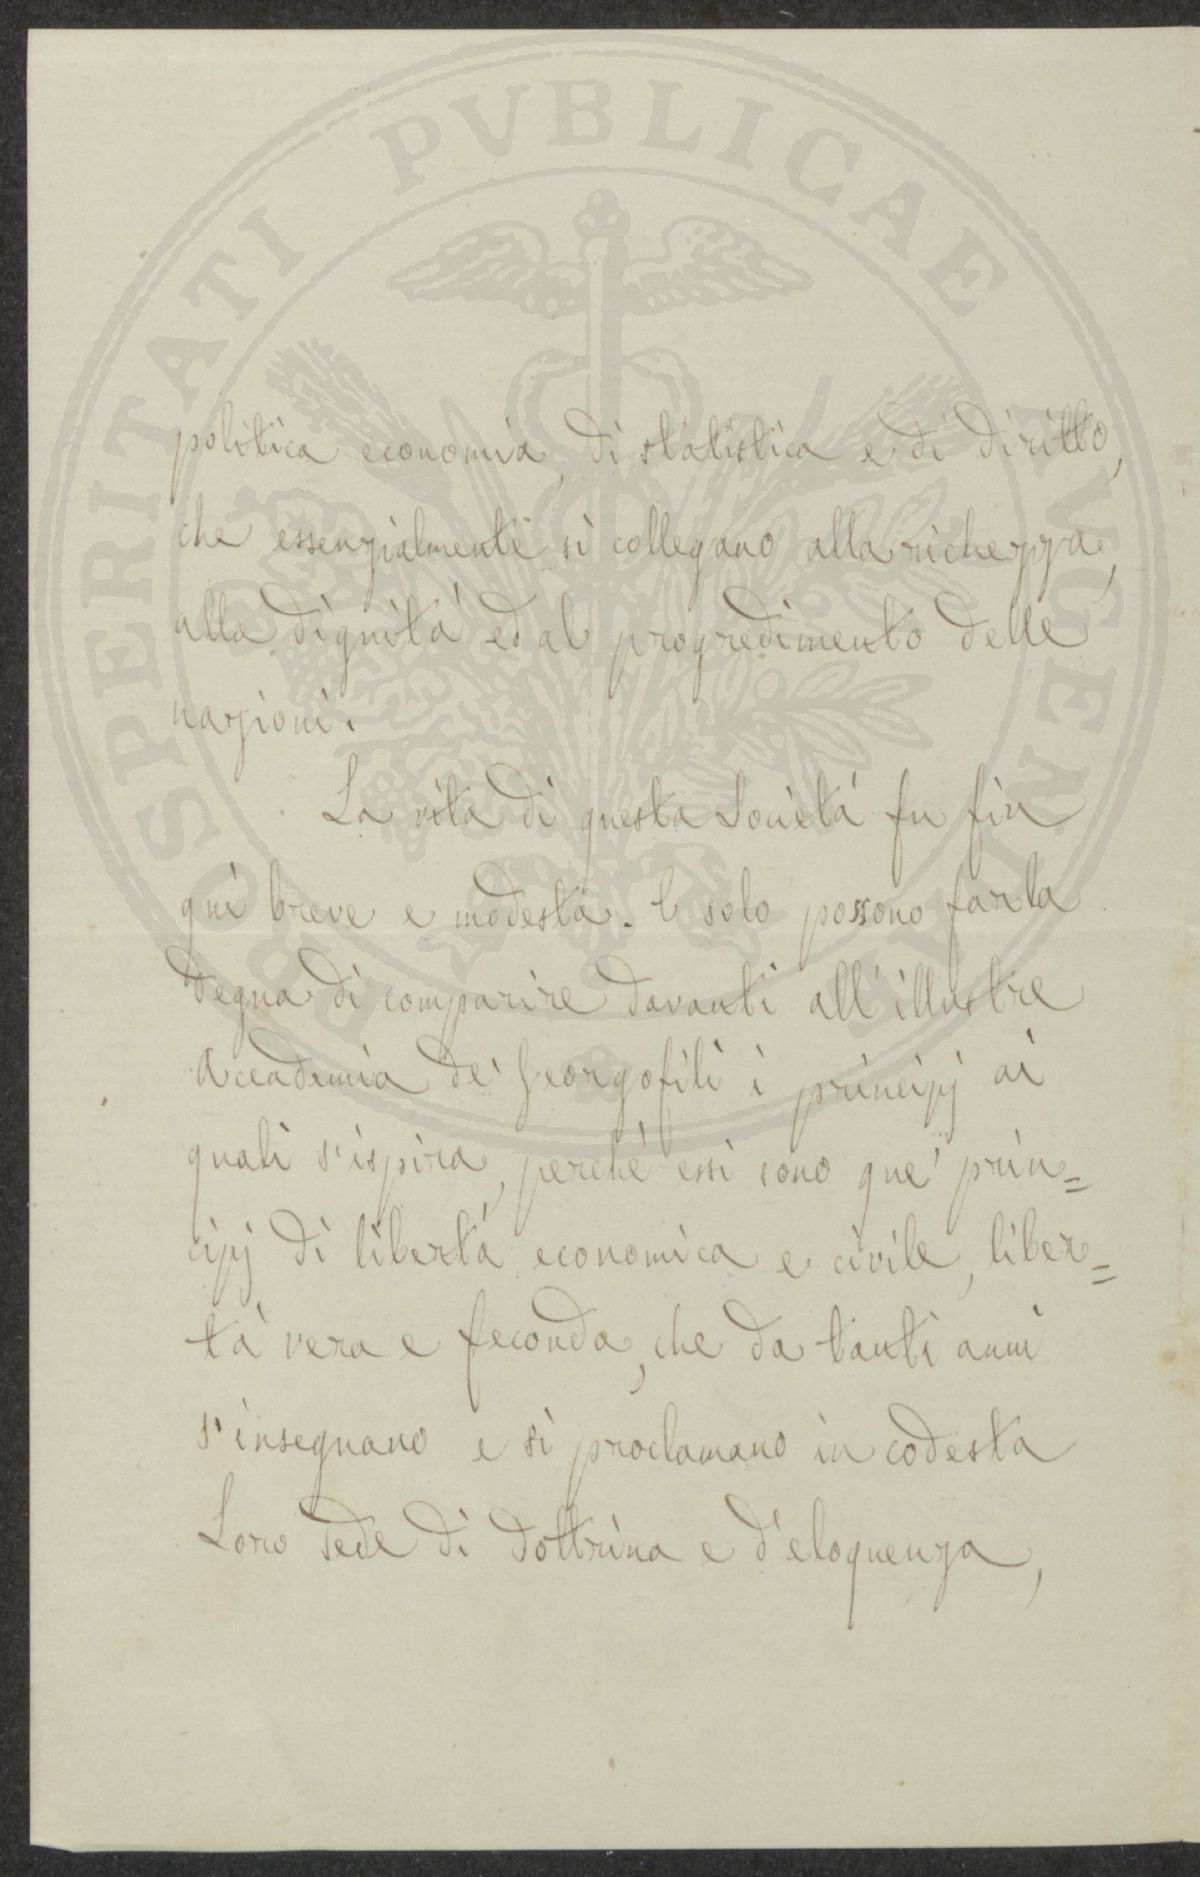 PROSPERITATI PVBLICAE AVGENDAE
politica economia, di statistica e di diritto,
che essenzialmente si collegano alla richezza,
alla dignità ed al progredimento delle
nazioni.
La vita di questa Società fu fin
quì breve e modesta. E solo possono farla
degna di comparire davanti all'illustre
Accademia de' Georgofili i principj ai
quali s'ispira, perchè essi sono que' prin=
cipj di libertà economica e civile, liber=
tà vera e feconda, che da tanti anni
s'insegnano e si proclamano in codesta
Loro Sede di dottrina e d'eloquenza,